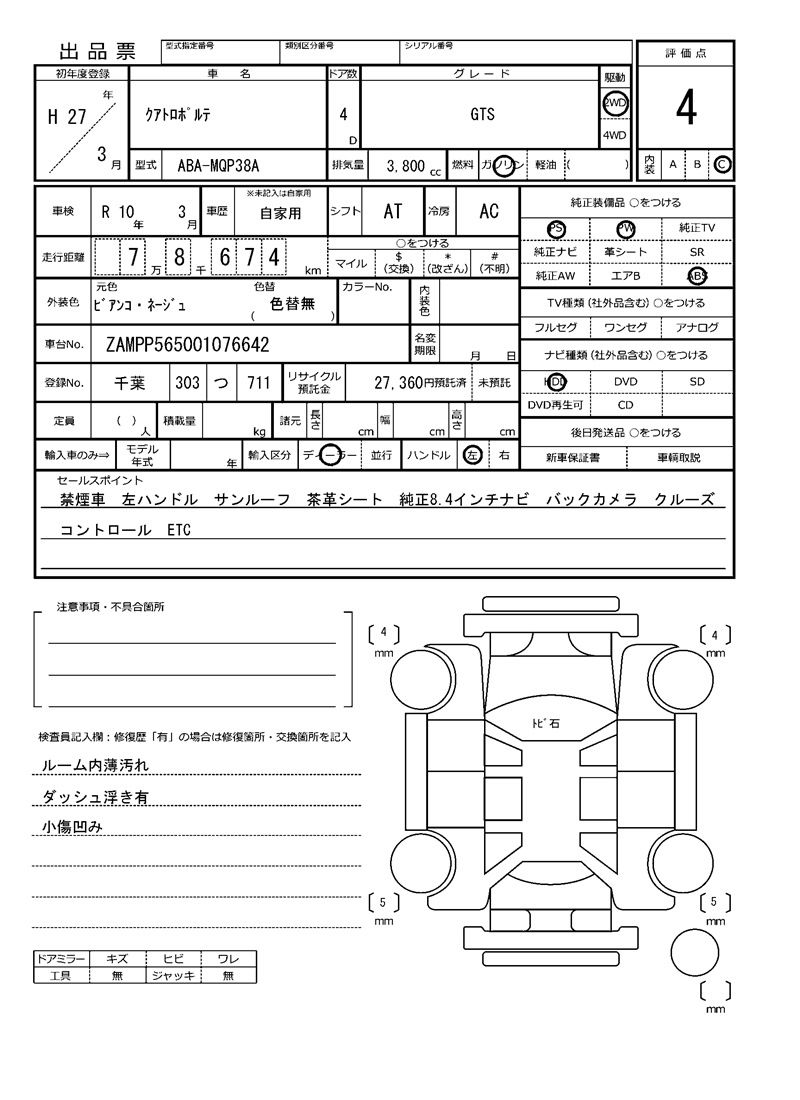 出品票
型式指定番号 類別区分番号 シリアル番号
評価点
初年度登録 車名 ドア数 グレード 駆動
H 27 年
3 月
クアトロポルテ
4 D
GTS
2WD
4WD
4
型式 ABA-MQP38A 排気量 3,800 cc 燃料 ガソリン 軽油 ( )
内装 A B C
車検 R 10 年 3 月 車歴 ※未記入は自家用 自家用 シフト AT 冷房 AC
純正装備品 ○をつける
PS PW 純正TV
純正ナビ 革シート SR
純正AW エアB ABS
走行距離 7 万 8 千 6 7 4 km
○をつける
マイル $ (交換) * (改ざん) # (不明)
外装色 元色 ビアンコ・ネージュ 色替 ( 色替無 ) カラーNo. 内装色
TV種類 (社外品含む) ○をつける
フルセグ ワンセグ アナログ
車台No. ZAMPP565001076642 名変期限 月 日
ナビ種類 (社外品含む) ○をつける
HDD DVD SD
DVD再生可 CD
登録No. 千葉 303 つ 711 リサイクル預託金 27,360円預託済 未預託
定員 ( ) 人 積載量 kg 諸元 長さ cm 幅 cm 高さ cm
後日発送品 ○をつける
新車保証書 車輌取説
輸入車のみ⇒ モデル年式 年 輸入区分 ディーラー 並行 ハンドル 左 右
セールスポイント
禁煙車 左ハンドル サンルーフ 茶革シート 純正8.4インチナビ バックカメラ クルーズ
コントロール ETC
注意事項・不具合箇所
検査員記入欄：修復歴「有」の場合は修復箇所・交換箇所を記入
ルーム内薄汚れ
ダッシュ浮き有
小傷凹み
ドアミラー キズ ヒビ ワレ
工具 無 ジャッキ 無
4 mm
4 mm
トビ石
5 mm
5 mm
mm